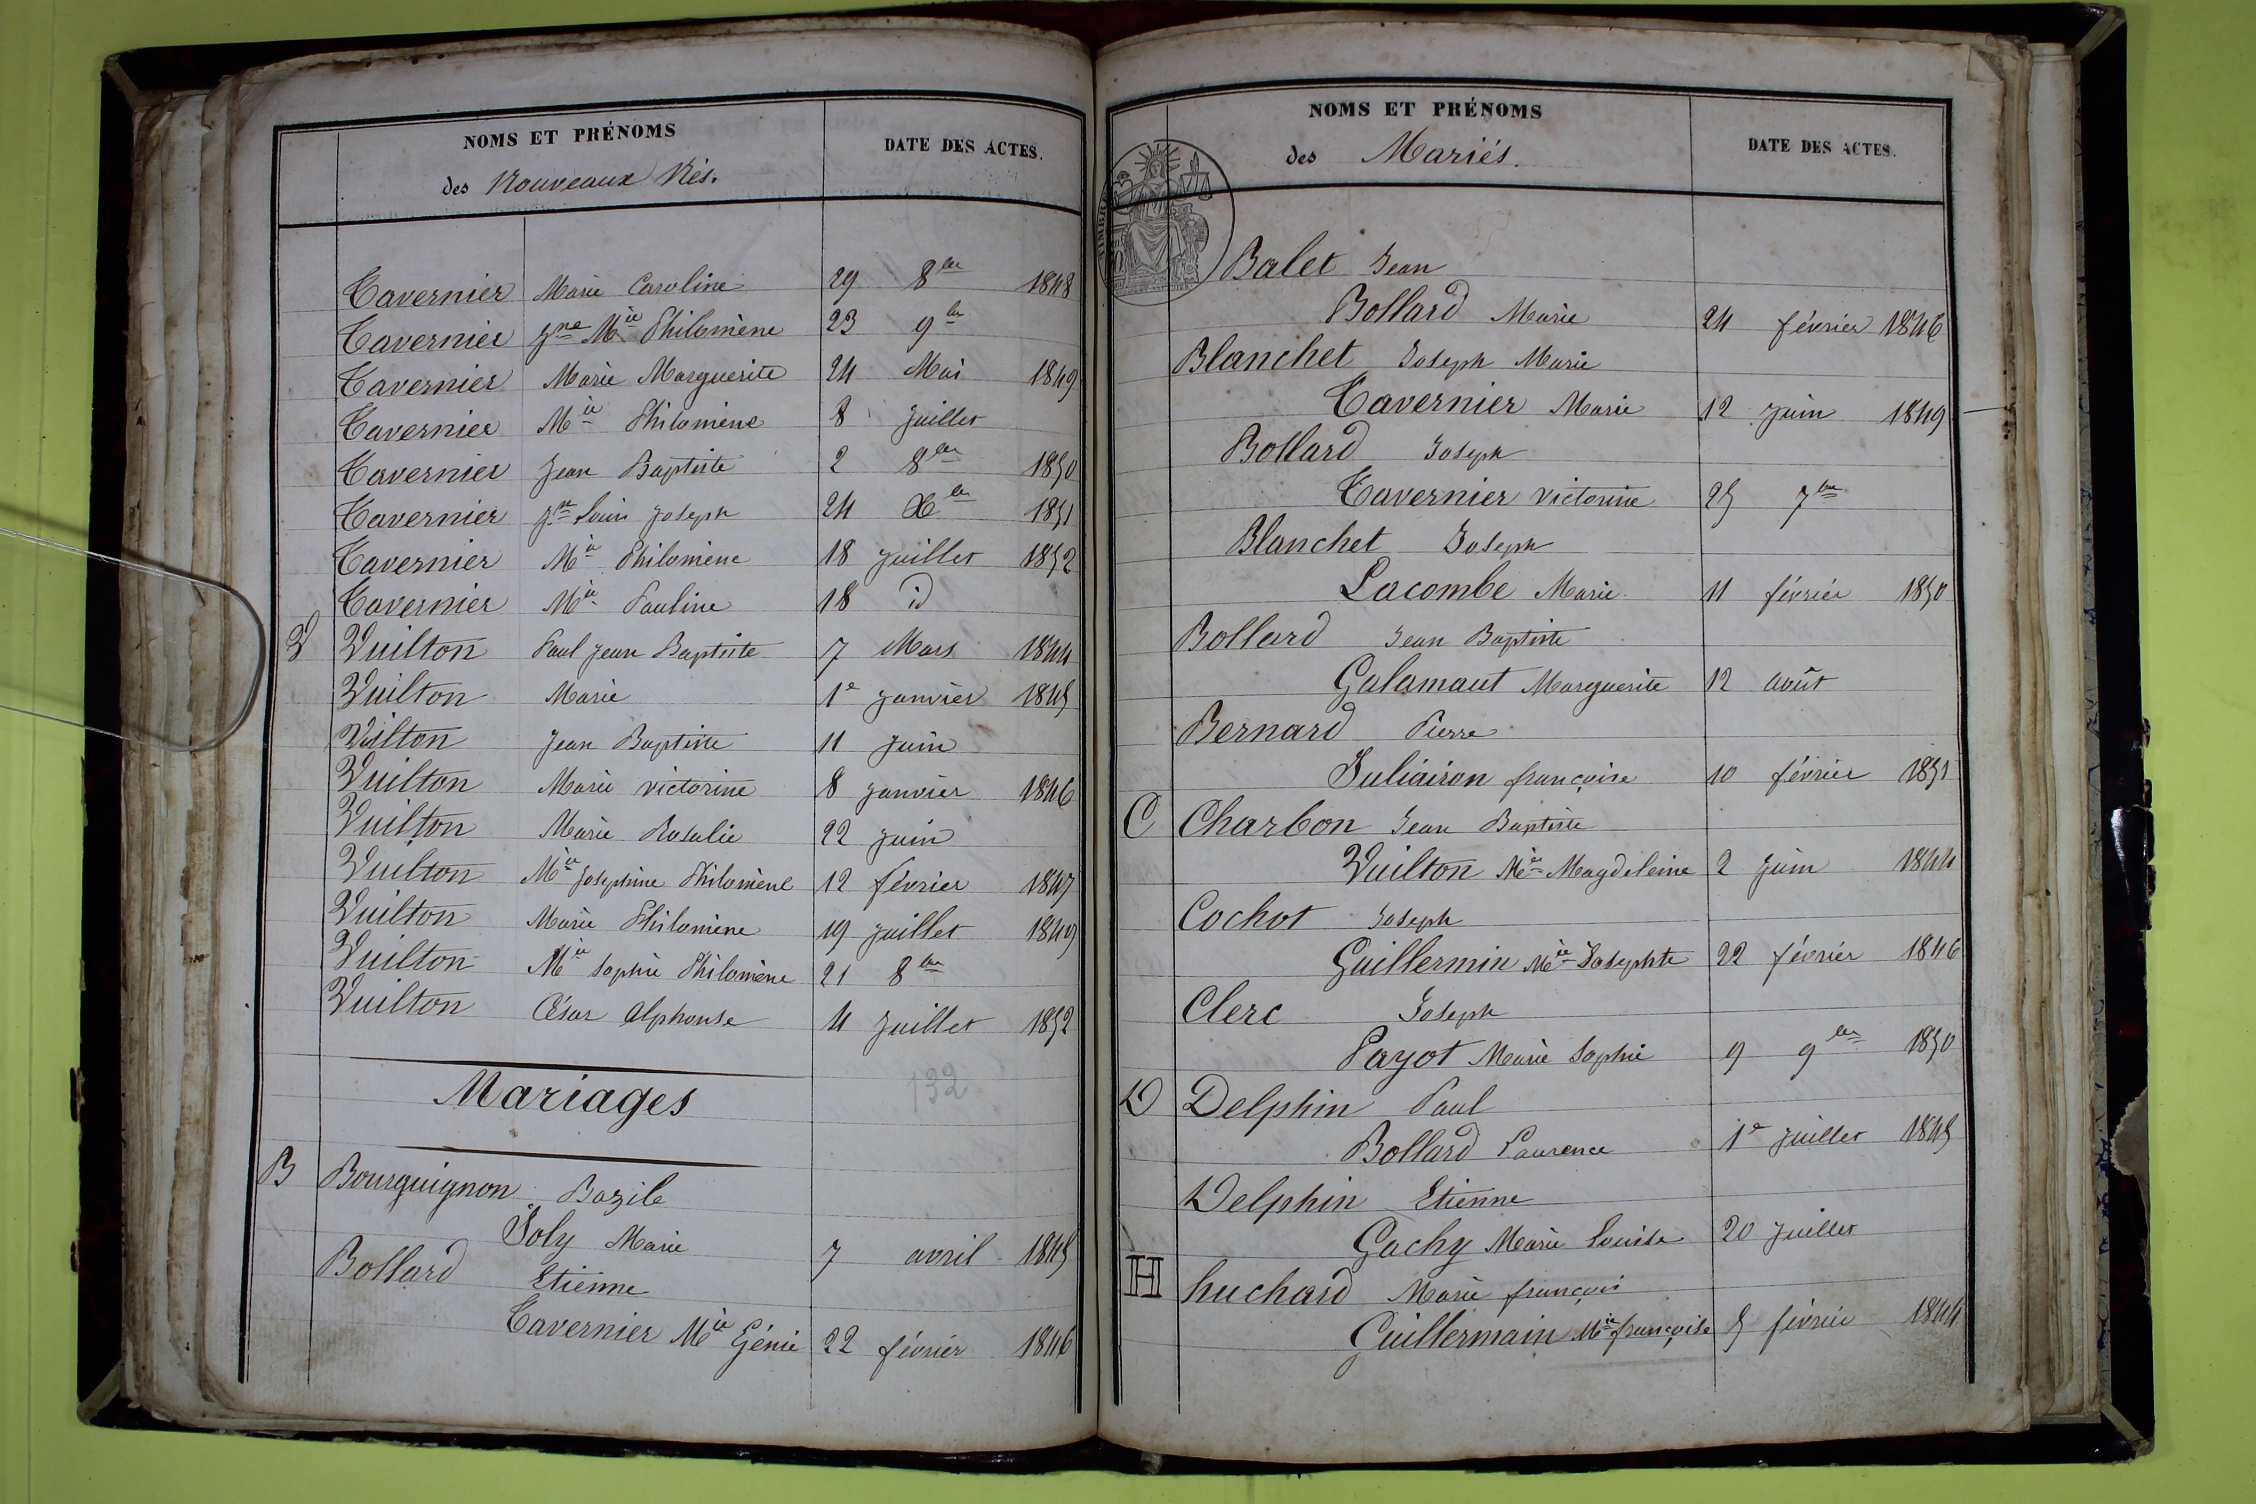 NOMS ET PRÉNOMS DATE DES ACTES.
des Nouveaux Nés.
Tavernier Marie Caroline 29 8bre 1848
Tavernier Jne Mie Philomène 23 9bre
Tavernier Marie Marguerite 24 Mai 1849
Tavernier Mie Philomène 8 juillet
Tavernier Jean Baptiste 2 8bre 1850
Tavernier Jn Louis Joseph 24 Xbre 1851
Tavernier Mie Philomène 18 juillet 1852
Tavernier Mie Pauline 18 id
V Vuilton Paul Jean Baptiste 7 Mars 1844
Vuilton Marie 1er janvier 1845
Vuilton Jean Baptiste 11 juin
Vuilton Marie Victorine 8 janvier 1846
Vuilton Marie Rosalie 22 juin
Vuilton Mie Josephine Philomène 12 février 1847
Vuilton Marie Philomène 19 juillet 1849
Vuilton Mie Sophie Philomène 21 8bre
Vuilton César Alphonse 4 juillet 1852
Mariages 132
B Bourguignon Bazile
Joly Marie 7 avril 1845
Bollard Etienne
Tavernier Mie Génie 22 février 1846
NOMS ET PRÉNOMS DATE DES ACTES.
des Mariés.
Balet Jean
Bollard Marie 24 février 1846
Blanchet Joseph Marie
Tavernier Marie 12 juin 1849
Bollard Joseph
Tavernier Victorine 25 7bre
Blanchet Joseph
Lacombe Marie 11 février 1850
Bollard Jean Baptiste
Galamaut Marguerite 12 août
Bernard Pierre
Juliairon françoise 10 février 1851
C Charbon Jean Baptiste
Vuilton Mie Magdeleine 2 juin 1844
Cochot Joseph
Guillermin Mie Josephte 22 février 1846
Clerc Joseph
Payot Marie Sophie 9 9bre 1850
D Delphin Paul
Bollard Laurence 1er juillet 1845
Delphin Etienne
Gachy Marie Louise 20 juillet
H huchard Marie françois
Guillermain Mie françoise 5 février 1844